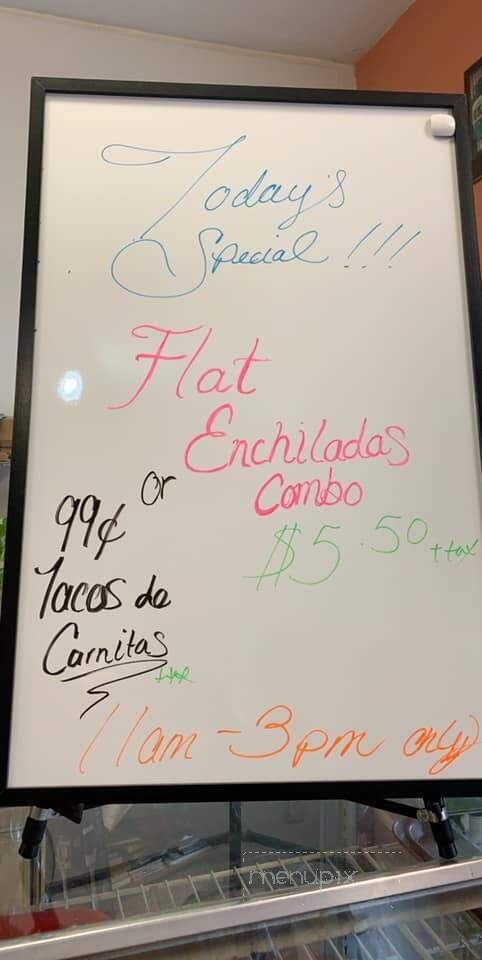 Today's
Special !!!
Flat
Enchiladas
Combo
$5.50 + tax
or
99¢
Tacos de
Carnitas
+ tax
11am - 3pm only
menupix